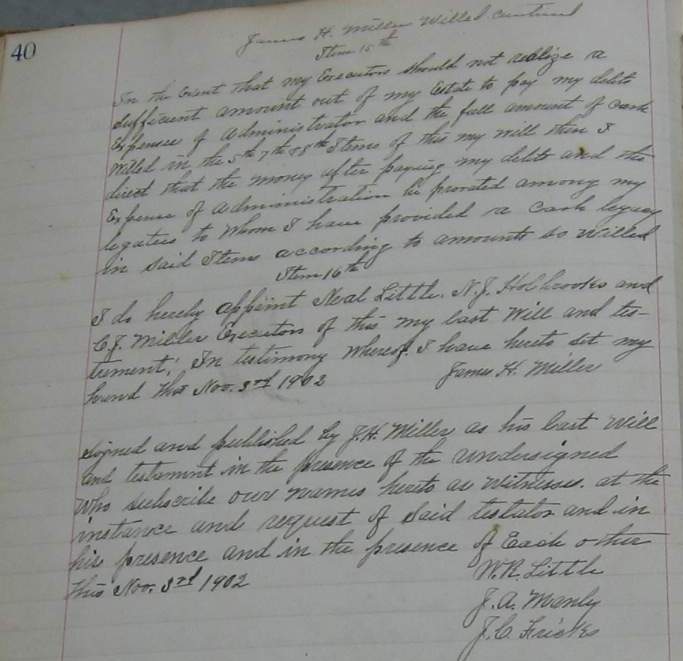 40
James H. Miller Willed continued
Item 15th
In the Event that my Executors should not realize a
sufficient amount out of my Estate to pay my debts
Expenses of Administrator and the full amount of cash
Willed in the 5th 7th & 8th Items of this my will then I
direct that the money after paying my debts and the
Expense of administration be prorated among my
legatees to whom I have provided a cash legacy
in said Items according to amounts so willed
Item 16th
I do hereby appoint Neal Little, N.J. Holbrooks and
C.J. Miller Executors of this my last Will and tes-
tement; In testimony whereof I have hereto set my
hand this Nov. 3rd 1902 James H. Miller
Signed and published by J.H. Miller as his last will
and testament in the presence of the undersigned
Who subscribe our names hereto as witnesses at the
instance and request of said testator and in
his presence and in the presence of Each other
this Nov. 3rd 1902 W.R. Little
J.A. Manly
J.C. Fricks